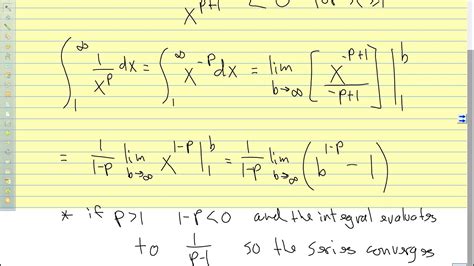 x^{p+1} < 0 for x ≥ 1
∫_1^∞ 1/x^p dx = ∫_1^∞ x^{-p} dx = lim_{b→∞} [x^{-p+1}/(-p+1)] |_1^b
= 1/(1-p) lim_{b→∞} x^{1-p} |_1^b = 1/(1-p) lim_{b→∞} (b^{1-p} - 1)
* if p>1 1-p<0 and the integral evaluates
to 1/(p-1) so the series converges